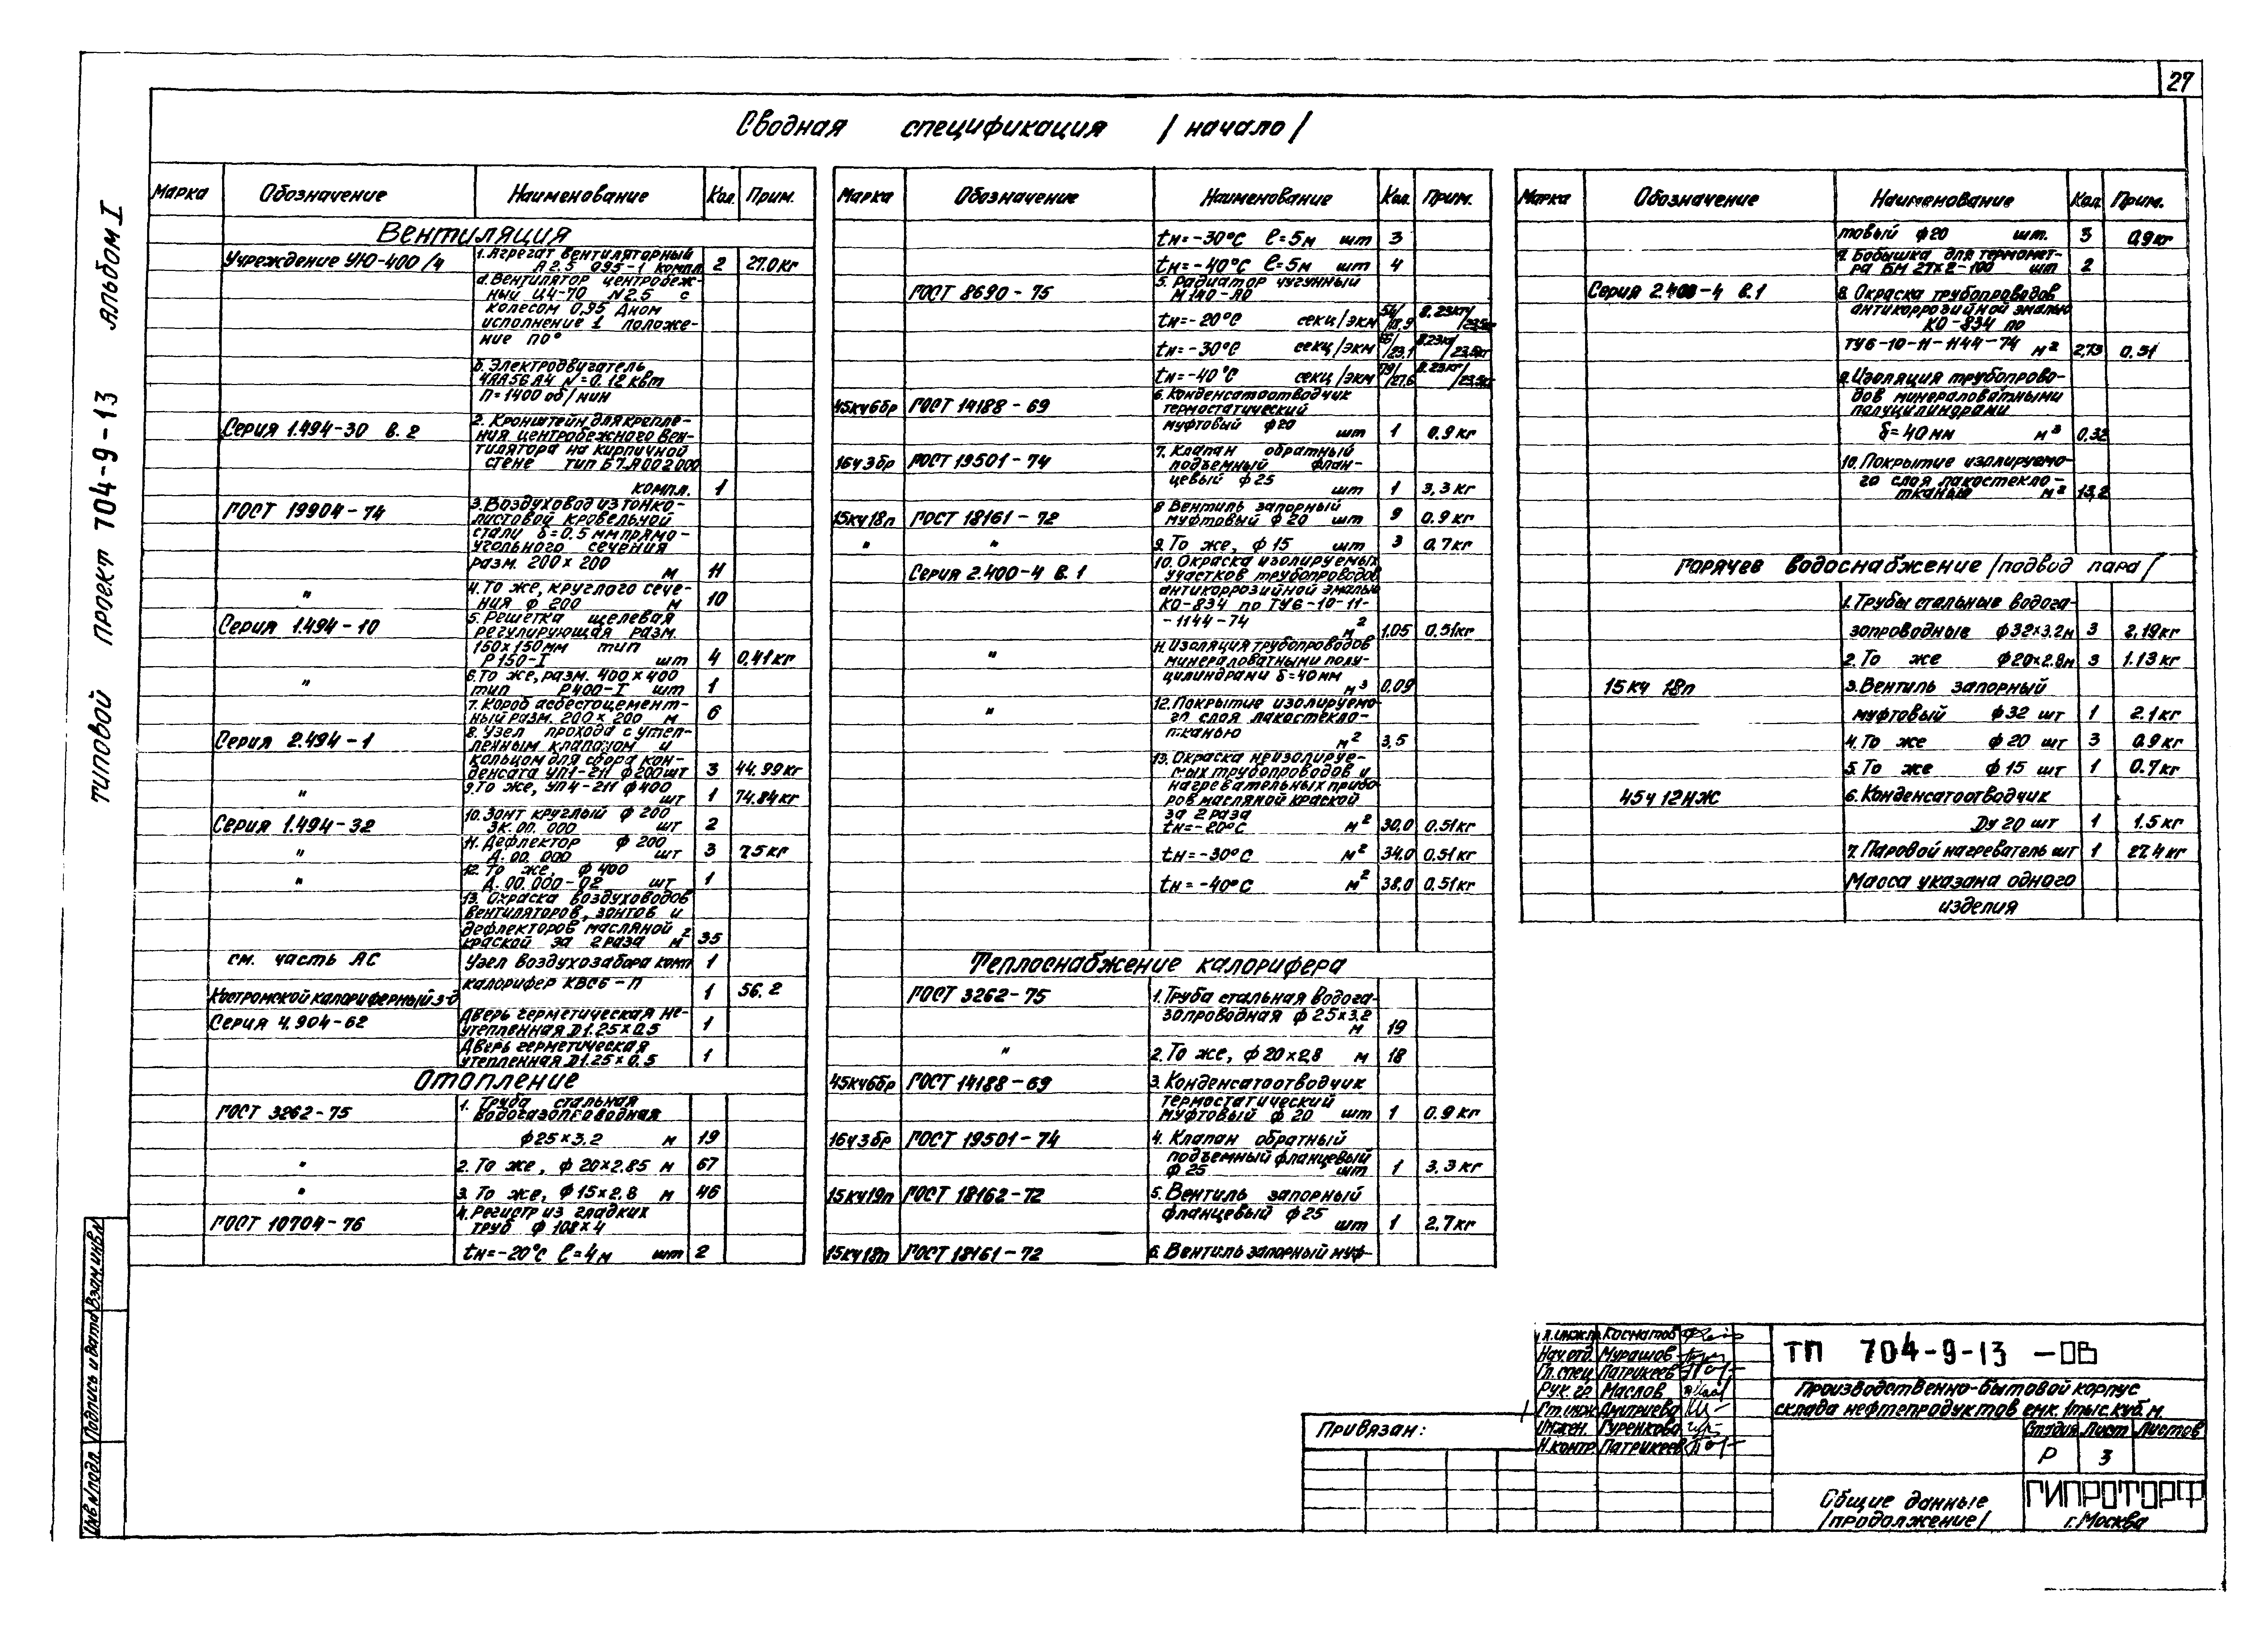 27
Сводная спецификация /начало/
Типовой проект 704-9-13 Альбом I
Марка Обозначение Наименование Кол. Прим.
Вентиляция
Учреждение УЮ-400/4 1. Агрегат вентиляторный
А2.5 095-1 компл 2 27.0кг
а. Вентилятор центробеж-
ный Ц4-70 N2.5 с
колесом 0,95 Dном
исполнение 1 положе-
ние по°
б. Электродвигатель
4АА56А4 N=0.12 квт
п=1400 об/мин
Серия 1.494-30 в. 2 2. Кронштейн для крепле-
ния центробежного вен-
тилятора на кирпичной
стене тип Б7.А002000
компл. 1
ГОСТ 19904-74 3. Воздуховод из тонко-
листовой кровельной
стали δ=0.5 мм прямо-
угольного сечения
разм. 200×200 м 11
" 4. То же, круглого сече-
ния ф 200 м 10
Серия 1.494-10 5. Решетка щелевая
регулирующая разм.
150×150мм тип
Р150-I шт 4 0,41кг
" 6. То же, разм. 400×400
тип Р400-I шт 1
7. Короб асбестоцемент-
ный разм. 200×200 м 6
Серия 2.494-1 8. Узел прохода с утеп-
ленным клапаном и
кольцом для сбора кон-
денсата УП1-2Н ф200шт 3 44.99кг
" 9. То же, УП4-2Н ф400
шт 1 74.84кг
Серия 1.494-32 10. Зонт круглый ф 200
ЗК.00.000 шт 2
" 11. Дефлектор ф 200
Д.00.000 шт 3 7.5кг
" 12. То же, ф 400
Д.00.000-02 шт 1
13. Окраска воздуховодов
вентиляторов, зонтов и
дефлекторов масляной
краской за 2 раза м² 35
см. часть АС Узел воздухозабора комп 1
Костромской калориферный з-д калорифер КВС6-П 1 56.2
Серия 4.904-62 Дверь герметическая не-
утепленная Д1.25×0.5 1
Дверь герметическая
утепленная Д1.25×0.5 1
Отопление
ГОСТ 3262-75 1. Труба стальная
водогазопроводная
ф25×3.2 м 19
" 2. То же, ф 20×2.85 м 67
" 3. То же, ф15×2.8 м 46
ГОСТ 10704-76 4. Регистр из гладких
труб ф 108×4
tн=-20°С ℓ=4м шт 2
Марка Обозначение Наименование Кол. Прим.
tн=-30°С ℓ=5м шт 3
tн=-40°С ℓ=5м шт 4
ГОСТ 8690-75 5. Радиатор чугунный
М140-АО
tн=-20°С секц/экм 54/18,9 8.23кг/23,5кг
tн=-30°С секц/экм /23,1 8.23кг/23,5кг
tн=-40°С секц/экм 79/27,6 8.23кг/23,5кг
45кч6бр ГОСТ 14188-69 6. Конденсатоотводчик
термостатический
муфтовый ф20 шт 1 0.9кг
16ч3бр ГОСТ 19501-74 7. Клапан обратный
подъемный флан-
цевый ф25 шт 1 3,3кг
15кч18п ГОСТ 18161-72 8 Вентиль запорный
муфтовый ф20 шт 9 0.9кг
" " 9. То же, ф 15 шт 3 0,7кг
Серия 2.400-4 в. 1 10. Окраска изолируемых
участков трубопроводов
антикоррозийной эмалью
КО-834 по ТУ6-10-11-
-1144-74 м² 1,05 0.51кг
" 11. Изоляция трубопроводов
минераловатными полу-
цилиндрами δ=40мм
м³ 0.09
" 12. Покрытие изолируемо-
го слоя лакостекло-
тканью м² 3,5
13. Окраска неизолируе-
мых трубопроводов и
нагревательных прибо-
ров масляной краской
за 2 раза
tн=-20°С м² 30.0 0.51кг
tн=-30°С м² 34.0 0.51кг
tн=-40°С м² 38.0 0.51кг
Теплоснабжение калорифера
ГОСТ 3262-75 1. Труба стальная водога-
зопроводная ф25×3.2
м 19
" 2. То же, ф20×2,8 м 18
45кч6бр ГОСТ 14188-69 3. Конденсатоотводчик
термостатический
муфтовый ф 20 шт 1 0.9кг
16ч3бр ГОСТ 19501-74 4. Клапан обратный
подъемный фланцевый
ф 25 шт 1 3,3кг
15кч19п ГОСТ 18162-72 5. Вентиль запорный
фланцевый ф25
шт 1 2.7кг
15кч18п ГОСТ 18161-72 6. Вентиль запорный муф-
Марка Обозначение Наименование Кол. Прим.
товый ф20 шт. 3 0,9кг
7. Бобышка для термомет-
ра БМ 27×2-100 шт 2
Серия 2.400-4 в.1 8. Окраска трубопроводов
антикоррозийной эмалью
КО-834 по
ТУ6-10-11-1144-74 м² 2,73 0.51
9. Изоляция трубопрово-
дов минераловатными
полуцилиндрами
δ=40мм м³ 0,32
10. Покрытие изолируемо-
го слоя лакостекло-
тканью м² 13,2
Горячее водоснабжение /подвод пара/
1. Трубы стальные водога-
зопроводные ф32×3.2м 3 2,19кг
2. То же ф20×2.8м 3 1.13кг
15кч 18п 3. Вентиль запорный
муфтовый ф32 шт 1 2.1кг
4. То же ф 20 шт 3 0.9кг
5. То же ф 15 шт 1 0.7кг
45ч12нж 6. Конденсатоотводчик
Ду 20 шт 1 1.5кг
7. Паровой нагреватель шт 1 27.4кг
Масса указана одного
изделия
Гл.инж.п Косматов
Нач.отд. Мурашов
Гл.спец Патрикеев
Рук.гр Маслов
Ст.инж Дмитриева
Инжен. Гуренкова
Н.контр Патрикеев
ТП 704-9-13 -ОВ
Производственно-бытовой корпус
склада нефтепродуктов емк. 1тыс.куб.м.
Стадия Лист Листов
Р 3
Привязан:
Общие данные
/продолжение/
ГИПРОТОРФ
г. Москва
Инв.N подл. Подпись и дата Взам.инв.N